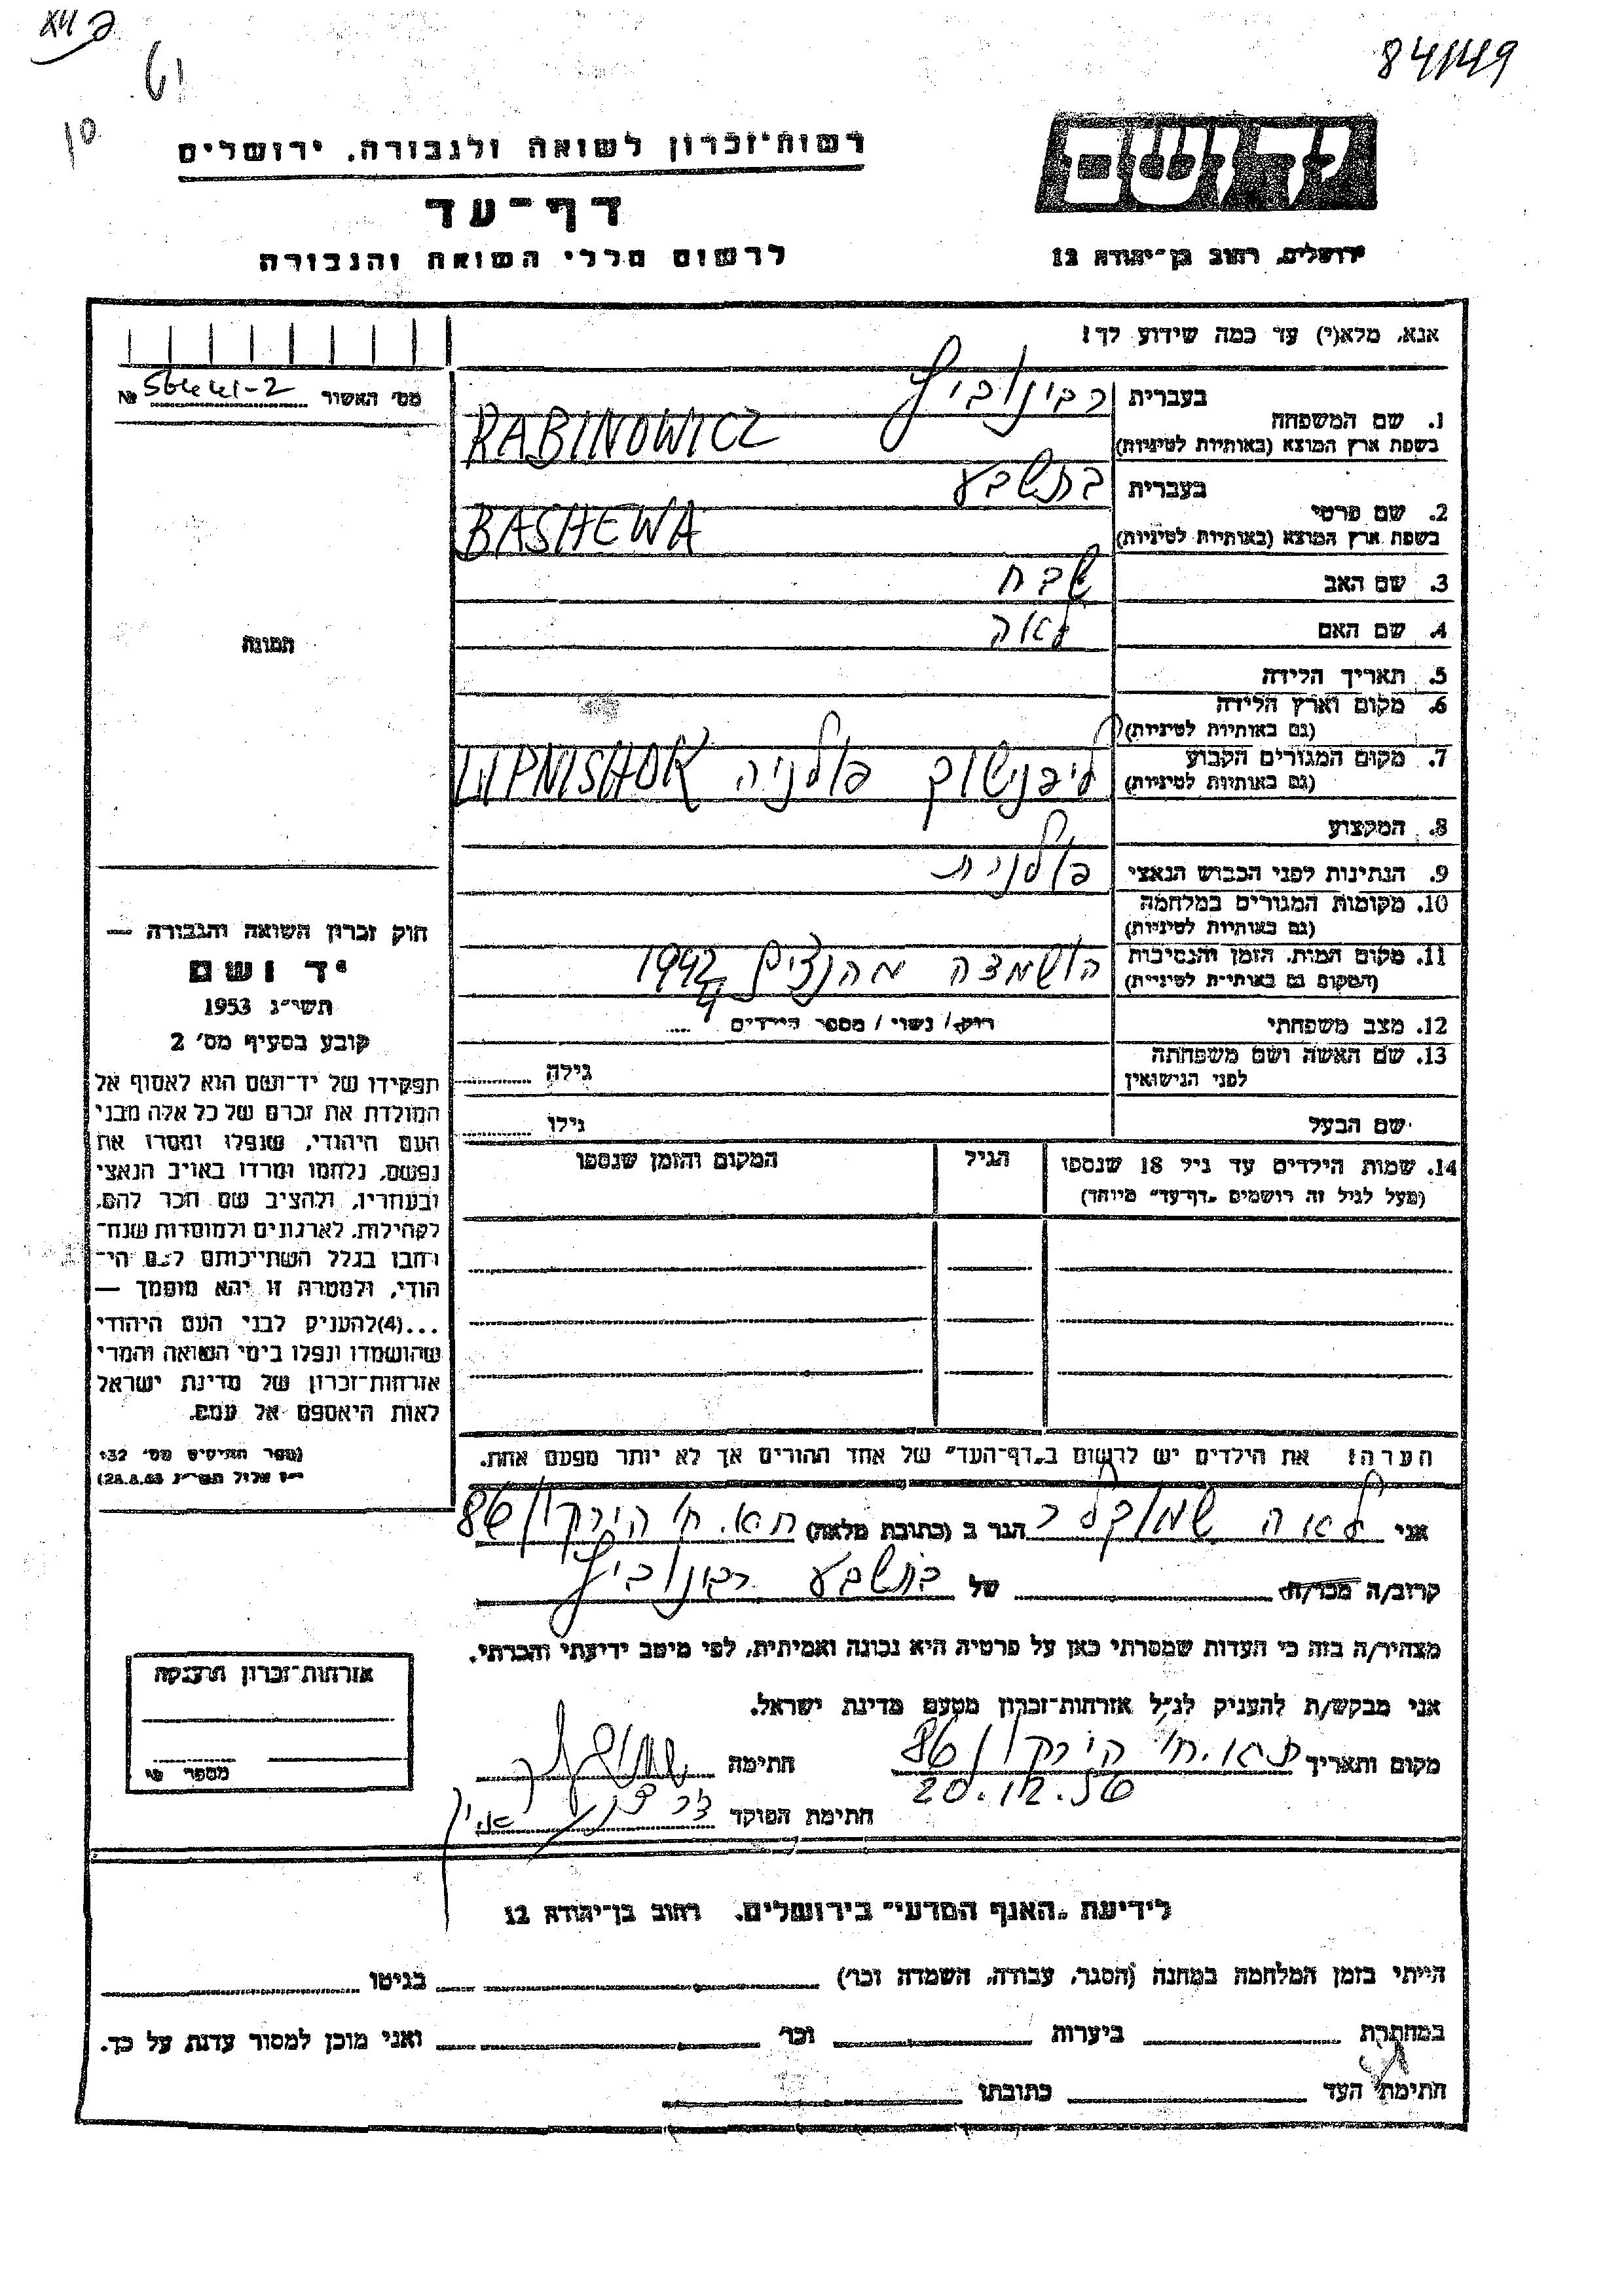 84/149
61
10
יד ושם
ירושלים, רחוב בן־יהודה 12
רשות־זכרון לשואה ולגבורה, ירושלים
דף־עד
לרשום חללי השואה והגבורה
אנא, מלא(י) עד כמה שידוע לך!
מס' האשור № 56441-2
1. שם המשפחה
בעברית רבינוביץ
בשפת ארץ המוצא (באותיות לטיניות) RABINOWICZ
2. שם פרטי
בעברית בתשבע
בשפת ארץ המוצא (באותיות לטיניות) BASHEWA
3. שם האב שבח
4. שם האם לאה
5. תאריך הלידה
6. מקום וארץ הלידה
(גם באותיות לטיניות)
7. מקום המגורים הקבוע ליפנישוק פולניה LIPNISHOK
(גם באותיות לטיניות)
8. המקצוע
9. הנתינות לפני הכבוש הנאצי פולנית
10. מקומות המגורים במלחמה
(גם באותיות לטיניות)
11. מקום המות, הזמן והנסיבות הושמדה מהנצים 1942
(המקום גם באותיות לטיניות)
12. מצב משפחתי רווק / נשוי / מספר הילדים
13. שם האשה ושם משפחתה
לפני הנישואין גילה
שם הבעל גילו
14. שמות הילדים עד גיל 18 שנספו הגיל המקום והזמן שנספו
(מעל לגיל זה רושמים „דף־עד" מיוחד)
הערה: את הילדים יש לרשום ב„דף־העד" של אחד ההורים אך לא יותר מפעם אחת.
תמונה
חוק זכרון השואה והגבורה —
יד ושם
תשי"ג 1953
קובע בסעיף מס' 2
תפקידו של יד־ושם הוא לאסוף אל
המולדת את זכרם של כל אלה מבני
העם היהודי, שנפלו ומסרו את
נפשם, נלחמו ומרדו באויב הנאצי
ובעוזריו, ולהציב שם וזכר להם,
לקהילות, לארגונים ולמוסדות שנח־
רבו בגלל השתייכותם לעם הי־
הודי, ולמטרה זו יהא מוסמך —
...(4) להעניק לבני העם היהודי
שהושמדו ונפלו בימי השואה והמרי
אזרחות־זכרון של מדינת ישראל
לאות היאספם אל עמם.
(ספר החוקים מס' 132,
י"ז אלול תשי"ג 28.8.53)
אני לאה שמוקלר הגר ב (כתובת מלאה) ת.א. ח' הירקון 86
קרוב/ה מכר/ה של בתשבע רבינוביץ
מצהיר/ה בזה כי העדות שמסרתי כאן על פרטיה היא נכונה ואמיתית, לפי מיטב ידיעתי והכרתי.
אני מבקש/ת להעניק לנ"ל אזרחות־זכרון מטעם מדינת ישראל.
מקום ותאריך ת.א. ח' הירקון 86 חתימה
20.12.56
חתימת הפוקד
אזרחות־זכרון הוענקה
מספר
לידיעת „האגף המדעי" בירושלים, רחוב בן־יהודה 12
הייתי בזמן המלחמה במחנה (הסגר, עבודה, השמדה וכו') בגיטו
במחתרת ביערות וכו' ואני מוכן למסור עדות על כך.
חתימת העד כתובתו